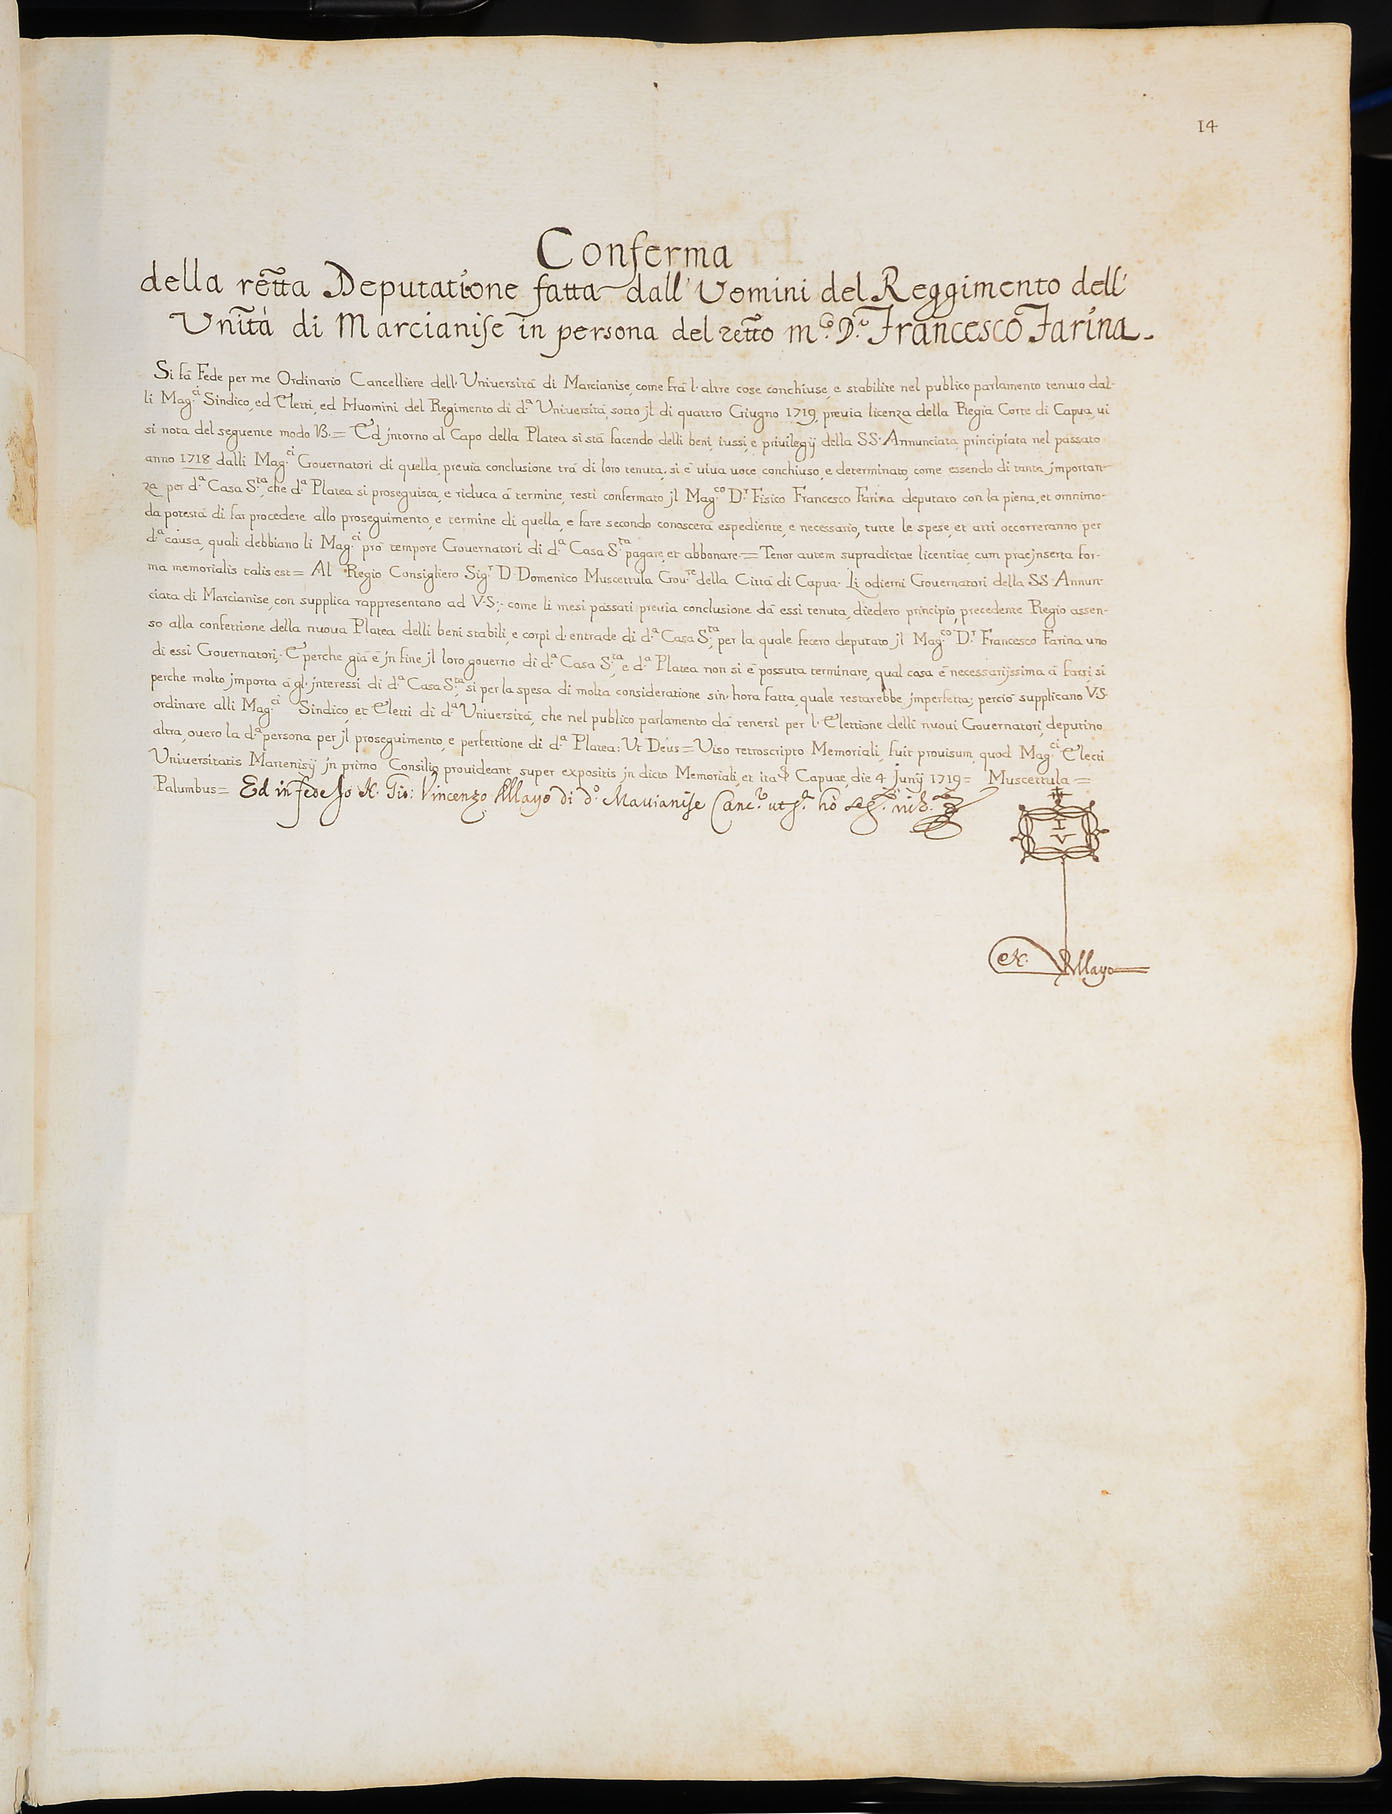 14
Conferma
della retta Deputatione fatta dall' Uomini del Reggimento dell'
Unità di Marcianise in persona del retto m.co D.r Francesco Farina.
Si fà Fede per me Ordinario Cancelliere dell' Università di Marcianise, come frà l'altre cose conchiuse, e stabilite nel publico parlamento tenuto dal-
li Mag.ci Sindico, ed Eletti, ed Huomini del Regimento di d.a Università, sotto jl di quattro Giugno 1719, previa licenza della Regia Corte di Capua, vi
si nota del seguente modo V3.= Ed jntorno al Capo della Platea si stà facendo delli beni, iussi, e privilegij della SS. Annunciata, principiata nel passato
anno 1718 dalli Mag.ci Governatori di quella, previa conclusione trà di loro tenuta, si è viva voce conchiuso, e determinato, come essendo di tanta jmportan-
za per d.a Casa S.ta, che d.a Platea si proseguisca, e riduca à termine, resti confermato jl Mag.co D.r Fisico Francesco Farina deputato con la piena, et omnimo-
da potestà di far procedere allo proseguimento, e termine di quella, e fare secondo conoscerà espediente, e necessario, tutte le spese, et atti occorreranno per
d.a causa, quali debbiano li Mag.ci prò tempore Governatori di d.a Casa S.ta pagare, et abbonare.= Tenor autem supradictae licentiae, cum praejnserta for-
ma memorialis talis est= Al Regio Consigliero Sig.r D. Domenico Muscettula Gov.re della Città di Capua. Li odierni Governatori della SS. Annun-
ciata di Marcianise, con supplica rappresentano ad V.S.: come li mesi passati previa conclusione dà essi tenuta, diedero principio, precedente Regio assen-
so alla confettione della nuova Platea delli beni stabili, e corpi d'entrade di d.a Casa S.ta, per la quale fecero deputato jl Mag.co D.r Francesco Farina uno
di essi Governatori. E perche già è jn fine jl loro governo di d.a Casa S.ta, e d.a Platea non si è possuta terminare, qual cosa è necessarijssima à farsi, si
perche molto jmporta à gl'jnteressi di d.a Casa S.ta, si per la spesa di molta consideratione sin'hora fatta, quale restarebbe jmperfetta; perciò supplicano V.S.
ordinare alli Mag.ci Sindico, et Eletti di d.a Università, che nel publico parlamento dà tenersi per l'Elettione delli nuovi Governatori, deputino
altra, overo la d.a persona per jl proseguimento, e perfettione di d.a Platea: Ut Deus= Viso retroscripto Memoriali, fuit provisum, quod Mag.ci Electi
Universitatis Martenisij jn primo Consilio provideant super expositis jn dicto Memoriali, et ita Capuae, die 4 Junij 1719= Muscettula=
Palumbus= Ed in fede Io N. Gio: Vincenzo Allayo di d.o Marcianise Canc.ro ut s.a
I
V
Allayo